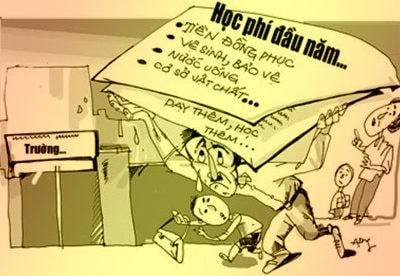 Học phí đầu năm...
• TIỀN ĐỒNG PHỤC
• VỆ SINH, BẢO VỆ
• NƯỚC UỐNG
• CƠ SỞ VẬT CHẤT...
DẠY THÊM, HỌC
THÊM...
Trường...